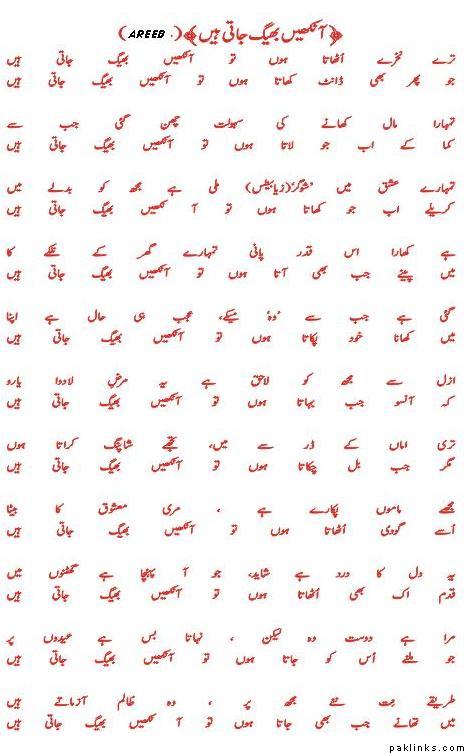 ﴿آنکھیں بھیگ جاتی ہیں﴾ (AREEB .)
ترے نخرے اُٹھاتا ہوں تو آنکھیں بھیگ جاتی ہیں
جو پھر بھی ڈانٹ کھاتا ہوں تو آنکھیں بھیگ جاتی ہیں
تمہارا مال کھانے کی سہولت چھن گئی جب سے
کما کے اب جو لاتا ہوں تو آنکھیں بھیگ جاتی ہیں
تمہارے عشق میں 'شوگر' (زیابیٹس) ملی ہے مجھ کو بدلے میں
کریلے اب جو کھاتا ہوں تو آنکھیں بھیگ جاتی ہیں
ہے کھارا اس قدر پانی تمہارے گھر کے نلکے کا
میں پینے جب بھی آتا ہوں تو آنکھیں بھیگ جاتی ہیں
گئی ہے جب سے 'وہ' میکے، عجب ہی حال ہے اپنا
میں کھانا خود پکاتا ہوں تو آنکھیں بھیگ جاتی ہیں
ازل سے مجھ کو لاحق ہے یہ مرضِ لادوا یارو
کہ آنسو جب بہاتا ہوں تو آنکھیں بھیگ جاتی ہیں
تری اماں کے ڈر سے میں، تجھے شاپنگ کراتا ہوں
مگر جب بل چکاتا ہوں تو آنکھیں بھیگ جاتی ہیں
مجھے ماموں پکارے ہے ، مری معشوق کا بیٹا
اُسے گودی اُٹھاتا ہوں تو آنکھیں بھیگ جاتی ہیں
یہ دل کا درد ہے شاید، جو آ پہنچا ہے گھٹنوں میں
قدم اک بھی اُٹھاتا ہوں تو آنکھیں بھیگ جاتی ہیں
مرا ہے دوست وہ لیکن ، نہاتا بس ہے عیدوں پر
جو ملنے اُس کو جاتا ہوں تو آنکھیں بھیگ جاتی ہیں
طریقے نِت نئے مجھ پر ، وہ ظالم آزماتے ہیں
میں تھانے جب بھی جاتا ہوں تو آنکھیں بھیگ جاتی ہیں
paklinks.com